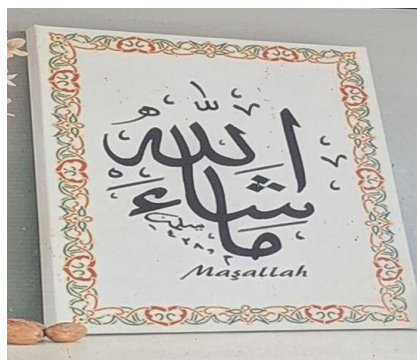 ما شاء الله
Maşallah